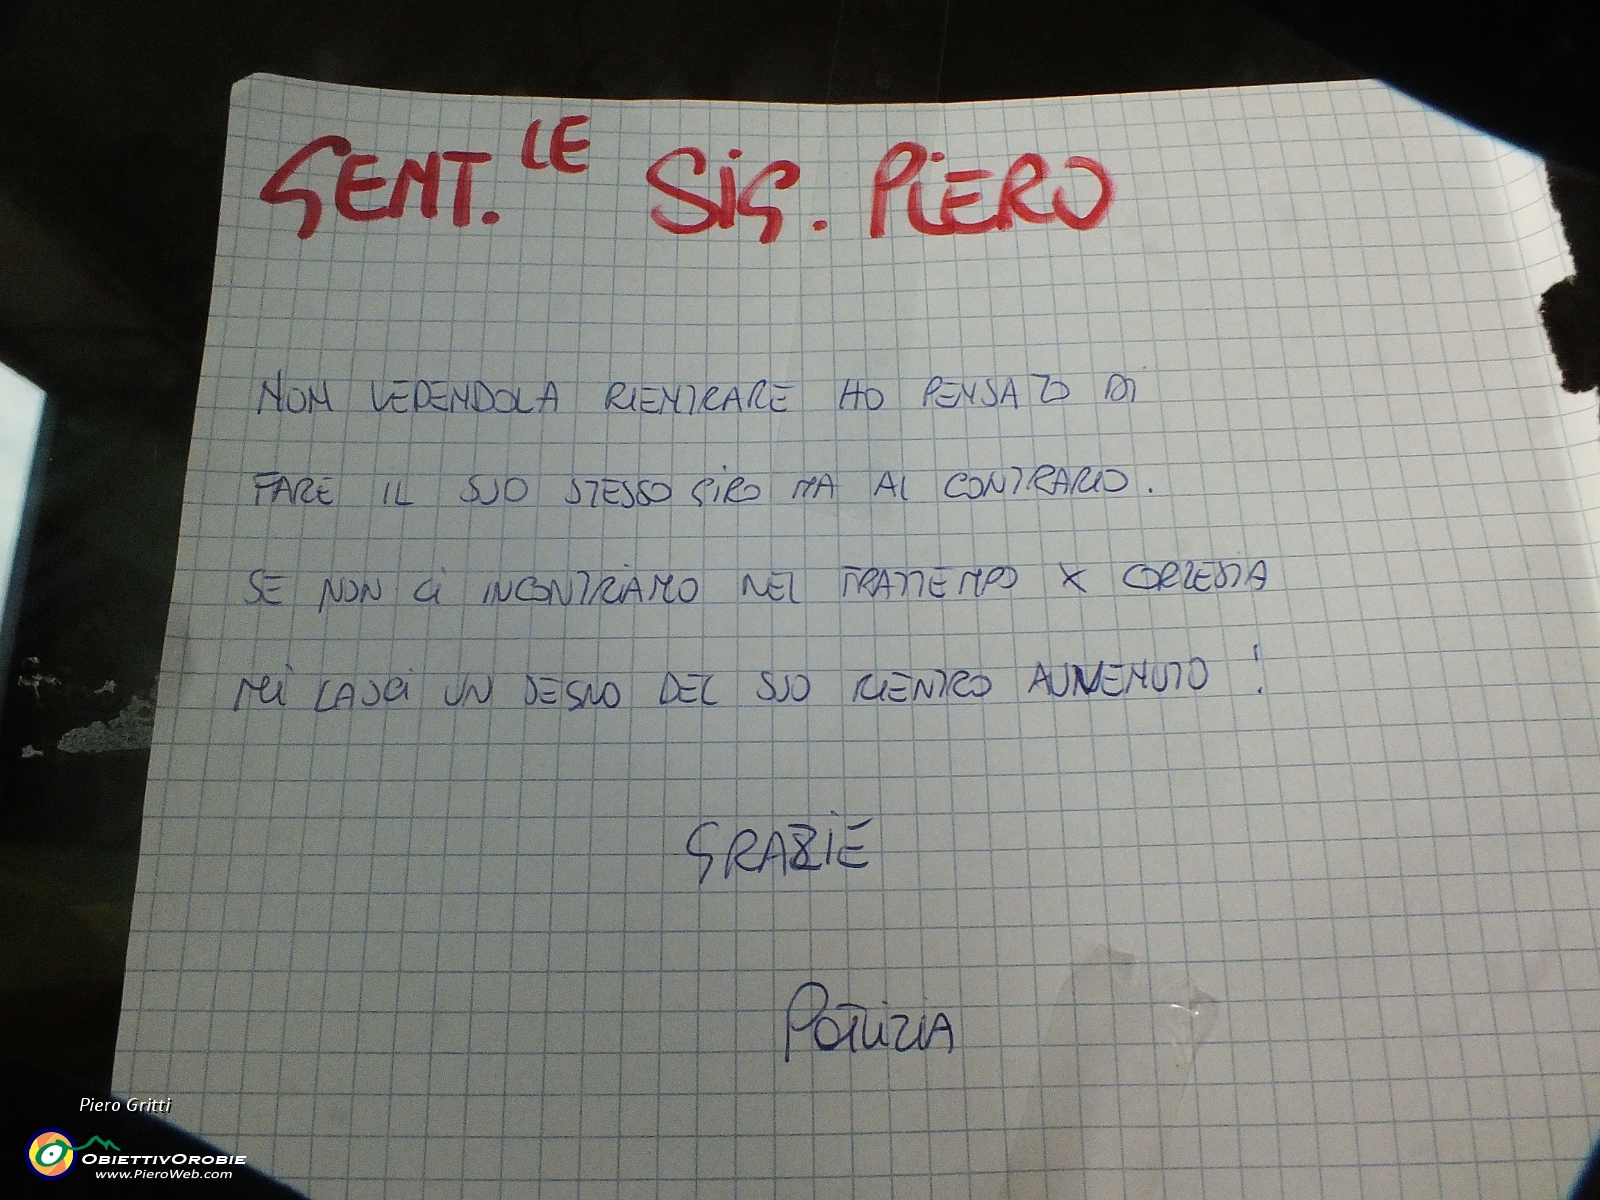 GENT.LE SIG. PIERO
NON VEDENDOLA RIENTRARE HO PENSATO DI
FARE IL SUO STESSO GIRO MA AL CONTRARIO.
SE NON CI INCONTRIAMO NEL FRATTEMPO X CORTESIA
MI LASCI UN SEGNO DEL SUO RIENTRO AVVENUTO!
GRAZIE
Piero Gritti
OBIETTIVOROBIE
www.PieroWeb.com